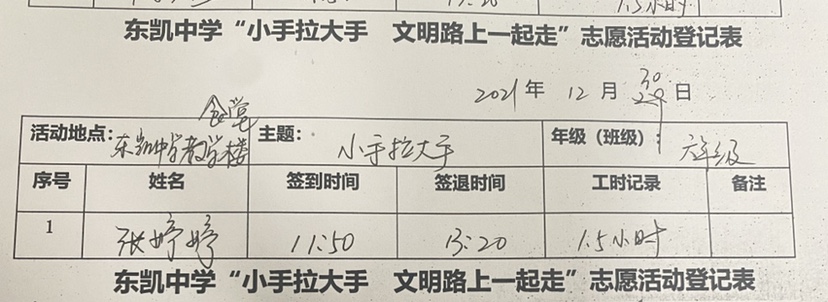 1.5小时
东凯中学“小手拉大手 文明路上一起走”志愿活动登记表
2021年 12月 30日
食堂
活动地点:东凯中学教学楼 主题: 小手拉大手 年级(班级): 六年级
序号 姓名 签到时间 签退时间 工时记录 备注
1 张婷婷 11:50 13:20 1.5小时
东凯中学“小手拉大手 文明路上一起走”志愿活动登记表